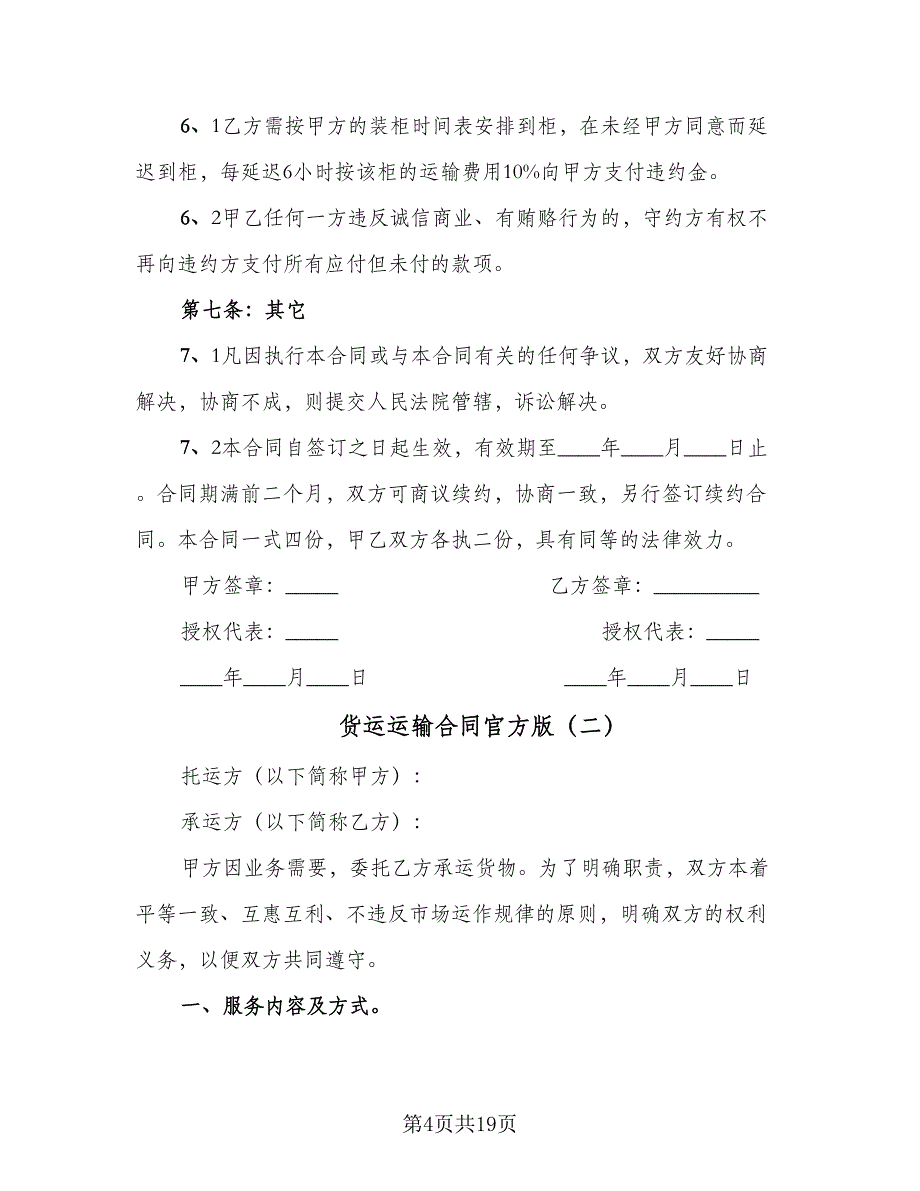 6、1乙方需按甲方的装柜时间表安排到柜，在未经甲方同意而延
迟到柜，每延迟6小时按该柜的运输费用10%向甲方支付违约金。
6、2甲乙任何一方违反诚信商业、有贿赂行为的，守约方有权不
再向违约方支付所有应付但未付的款项。
第七条：其它
7、1凡因执行本合同或与本合同有关的任何争议，双方友好协商
解决，协商不成，则提交人民法院管辖，诉讼解决。
7、2本合同自签订之日起生效，有效期至____年____月____日止
。合同期满前二个月，双方可商议续约，协商一致，另行签订续约合
同。本合同一式四份，甲乙双方各执二份，具有同等的法律效力。
甲方签章：_____ 乙方签章：__________
授权代表：_____ 授权代表：_____
____年____月____日 ____年____月____日
货运运输合同官方版（二）
托运方（以下简称甲方）：
承运方（以下简称乙方）：
甲方因业务需要，委托乙方承运货物。为了明确职责，双方本着
平等一致、互惠互利、不违反市场运作规律的原则，明确双方的权利
义务，以便双方共同遵守。
一、服务内容及方式。
第4页共19页